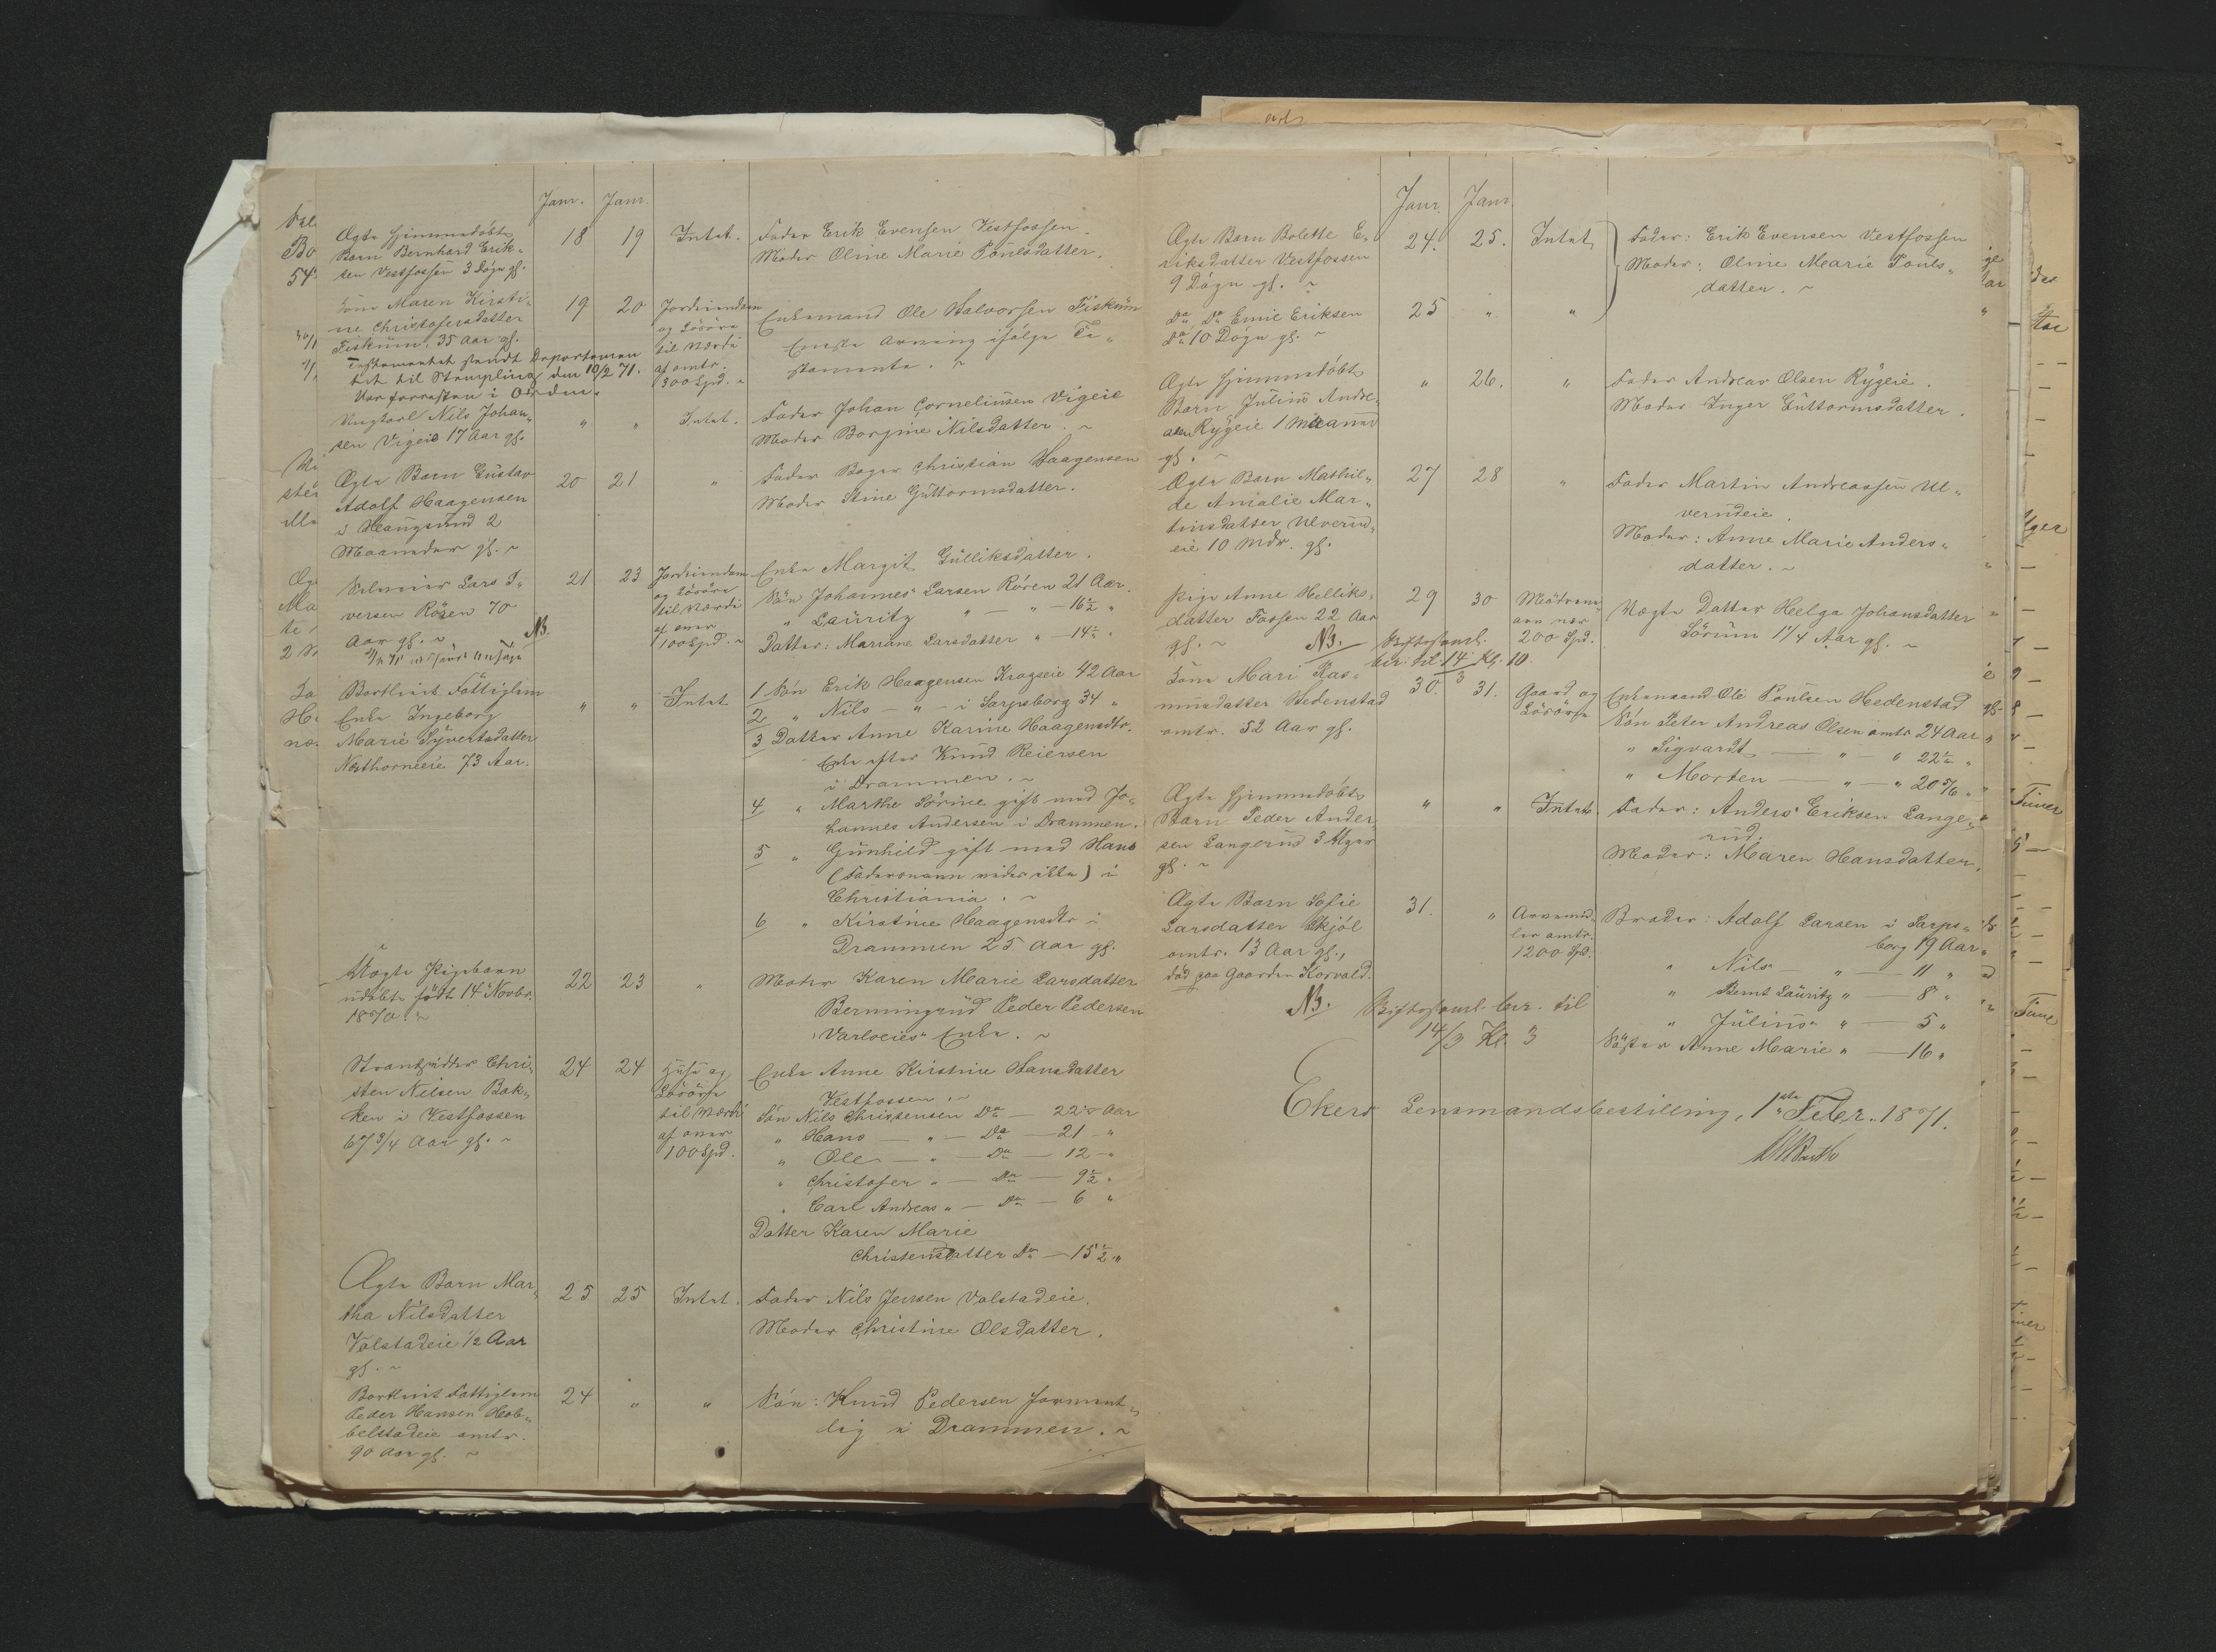 Janr. Janr.
Ægte hjemmedøbt
Barn Bernhard Erik-
sen Vestfossen 3 Døgn gl.
18 19 Intet.
Fader Erik Evensen Vestfossen.
Moder Oline Marie Poulsdatter.
Kone Maren Kirsti-
ne Christofersdatter
Fiskum, 35 Aar gl.
19 20
Jordeiendom
og Løsøre
til Værdi
af omtr.
300 Spd.
Enkemand Ole Halvorsen Fiskum
Eneste Arving ifølge Te-
stamente.
Testamentet sendt Departemen
tet til Stempling den 10/2 71.
Var forresten i Orden.
Ungkarl Nils Johan-
sen Vigeie 17 Aar gl.
" " Intet.
Fader Johan Corneliusen Vigeie
Moder Borgine Nilsdatter.
Ægte Barn Gustav
Adolf Haagensen
i Haugsund 2
Maaneder gl.
20 21 "
Fader Bager Christian Haagensen
Moder Stine Guttormsdatter.
Selveier Lars I-
versen Røren 70
Aar gl.
NB.
21 23
Jordeiendom
og Løsøre
til Værdi
af over
100 Spd.
Enke Margit Gulliksdatter.
Søn Johannes Larsen Røren 21 Aar.
" Lauritz " — " — 16½ "
Datter: Mariane Larsdatter " — 14½ "
Bortleiet Fattiglem
Enke Ingeborg
Marie Syvertsdatter
Næsthorneeie 73 Aar.
" " Intet
1 Søn Erik Haagensen Kragseie 42 Aar
2 " Nils — " — i Sarpsborg 34 "
3 Datter Anne Karine Haagensdtr.
Enke efter Knud Reiersen
i Drammen.
4 " Marthe Sørine gift med Jo-
hannes Andersen i Drammen.
5 " Gunhild gift med Hans
(Fadersnavn vides ikke) i
Christiania.
6 " Kirstine Haagensdtr i
Drammen 25 Aar gl.
Uægte Pigebarn
udøbt født 14 Novbr.
1870.
22 23 "
Moder Karen Marie Larsdatter
Bermingrud Peder Pedersen
Varloeies Enke.
Strandsidder Chri-
sten Nilsen Bak-
ken i Vestfossen
67 3/4 Aar gl.
24 24
Huse og
Løsøre
til Værdi
af over
100 Spd.
Enke Anne Kirstine Hansdatter
Vestfossen.
Søn Nils Christensen Do — 22½ Aar
" Hans — " — Do — 21 — "
" Ole — " — Do — 12 — "
" Christofer " — Do — 9½ "
" Carl Andreas " — Do — 6 "
Datter Karen Marie
Christensdatter Do — 15½ "
Ægte Barn Mar-
tha Nilsdatter
Valstadeie 1/2 Aar
gl.
25 25 Intet.
Fader Nils Jensen Valstadeie.
Moder Christine Olsdatter.
Bortleiet Fattiglem
Peder Hansen Hob-
belstadeie omtr.
90 Aar gl.
24 " "
Søn: Knud Pedersen forment-
lig i Drammen.
Janr. Janr.
Ægte Barn Bolette E-
riksdatter Vestfossen
9 Døgn gl.
24. 25. Intet
Fader: Erik Evensen Vestfossen
Moder: Oline Marie Pouls-
datter.
Do Do Emie Eriksen
Do 10 Døgn gl.
25 " "
Ægte hjemmedøbt
Barn Julius Andre-
asen Rygeie 1 Maaned
gl.
" 26. "
Fader Andreas Olsen Rygeie.
Moder Inger Guttormsdatter.
Ægte Barn Mathil-
de Amalie Mar-
tinsdatter Ulverud-
eie 10 Mdr. gl.
27 28 "
Fader Martin Andreassen Ul-
verudeie.
Moder: Anne Marie Anders-
datter.
Pige Anne Helliks-
datter Fossen 22 Aar
gl.
29 30
Mødrene-
arv over
200 Spd.
Uægte Datter Helga Johansdatter
Sørum 1 1/4 Aar gl.
NB. Skiftesaml.
ber. til 14/3 Kl. 10.
Kone Mari Ras-
musdatter Hedenstad
omtr. 52 Aar gl.
30. 31.
Gaard og
Løsøre
Enkemand Ole Poulsen Hedenstad
Søn Peter Andreas Olsen omtr 24 Aar
" Sigvardt — " — " 22½ "
" Morten — " — " 20 5/6 "
Ægte hjemmedøbt
Barn Peder Ander-
sen Langerud 3 Uger
gl.
" " Intet.
Fader: Anders Eriksen Lange-
rud.
Moder: Maren Hansdatter.
Ægte Barn Sofie
Larsdatter Skjøl
omtr. 13 Aar gl.,
død paa Gaarden Korvald.
31. "
Arvemid-
ler omtr.
1200 Spd.
Broder: Adolf Larsen i Sarps-
borg 19 Aar
" Nils — " — 11 "
" Bernt Lauritz " — 8 "
" Julius " — 5 "
Søster Anne Marie " — 16 "
NB. Skiftesaml. ber. til
14/3 Kl. 3
Ekers Lensmandsbestilling, 1ste Febr. 1871.